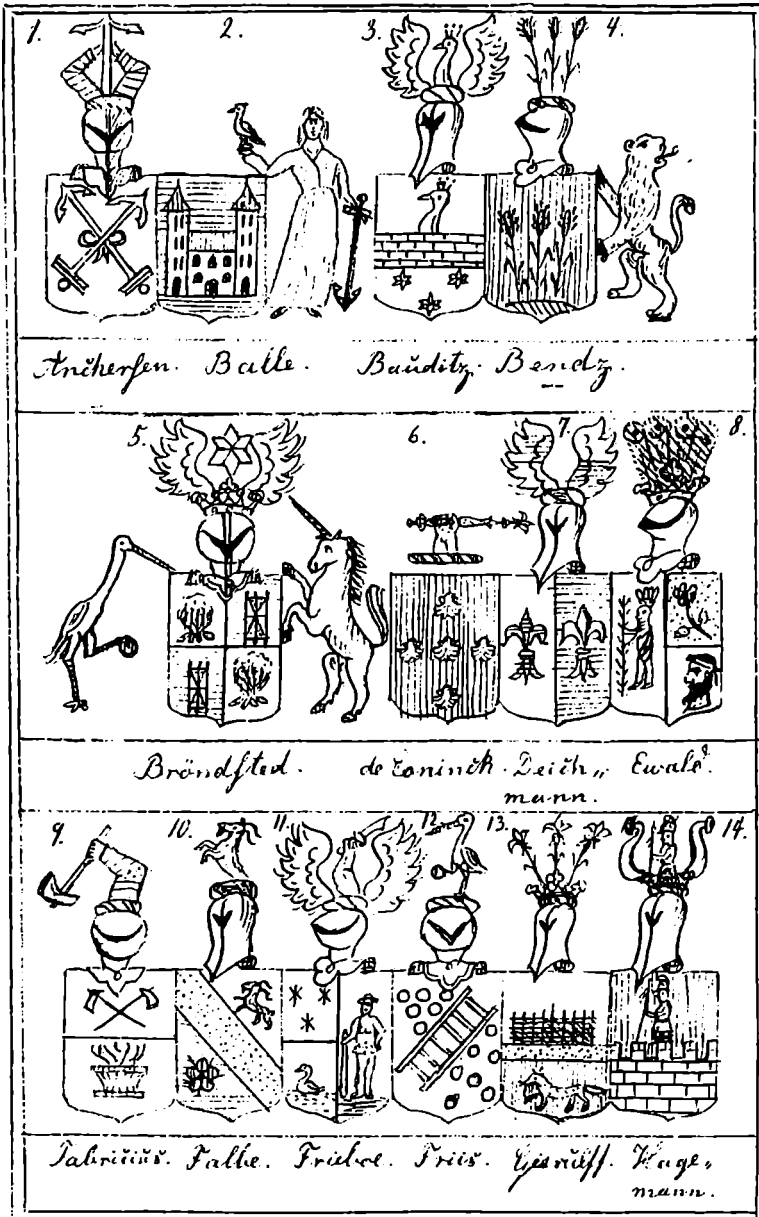 1. 2. 3. 4.
Anchersen. Balle. Bauditz. Bendz.
5. 6. 7. 8.
Bröndsted. de Coninck. Deich„ Ewald.
mann.
9. 10. 11. 12. 13. 14.
Fabricius. Falbe. Friboe. Friis. Hage„
mann.